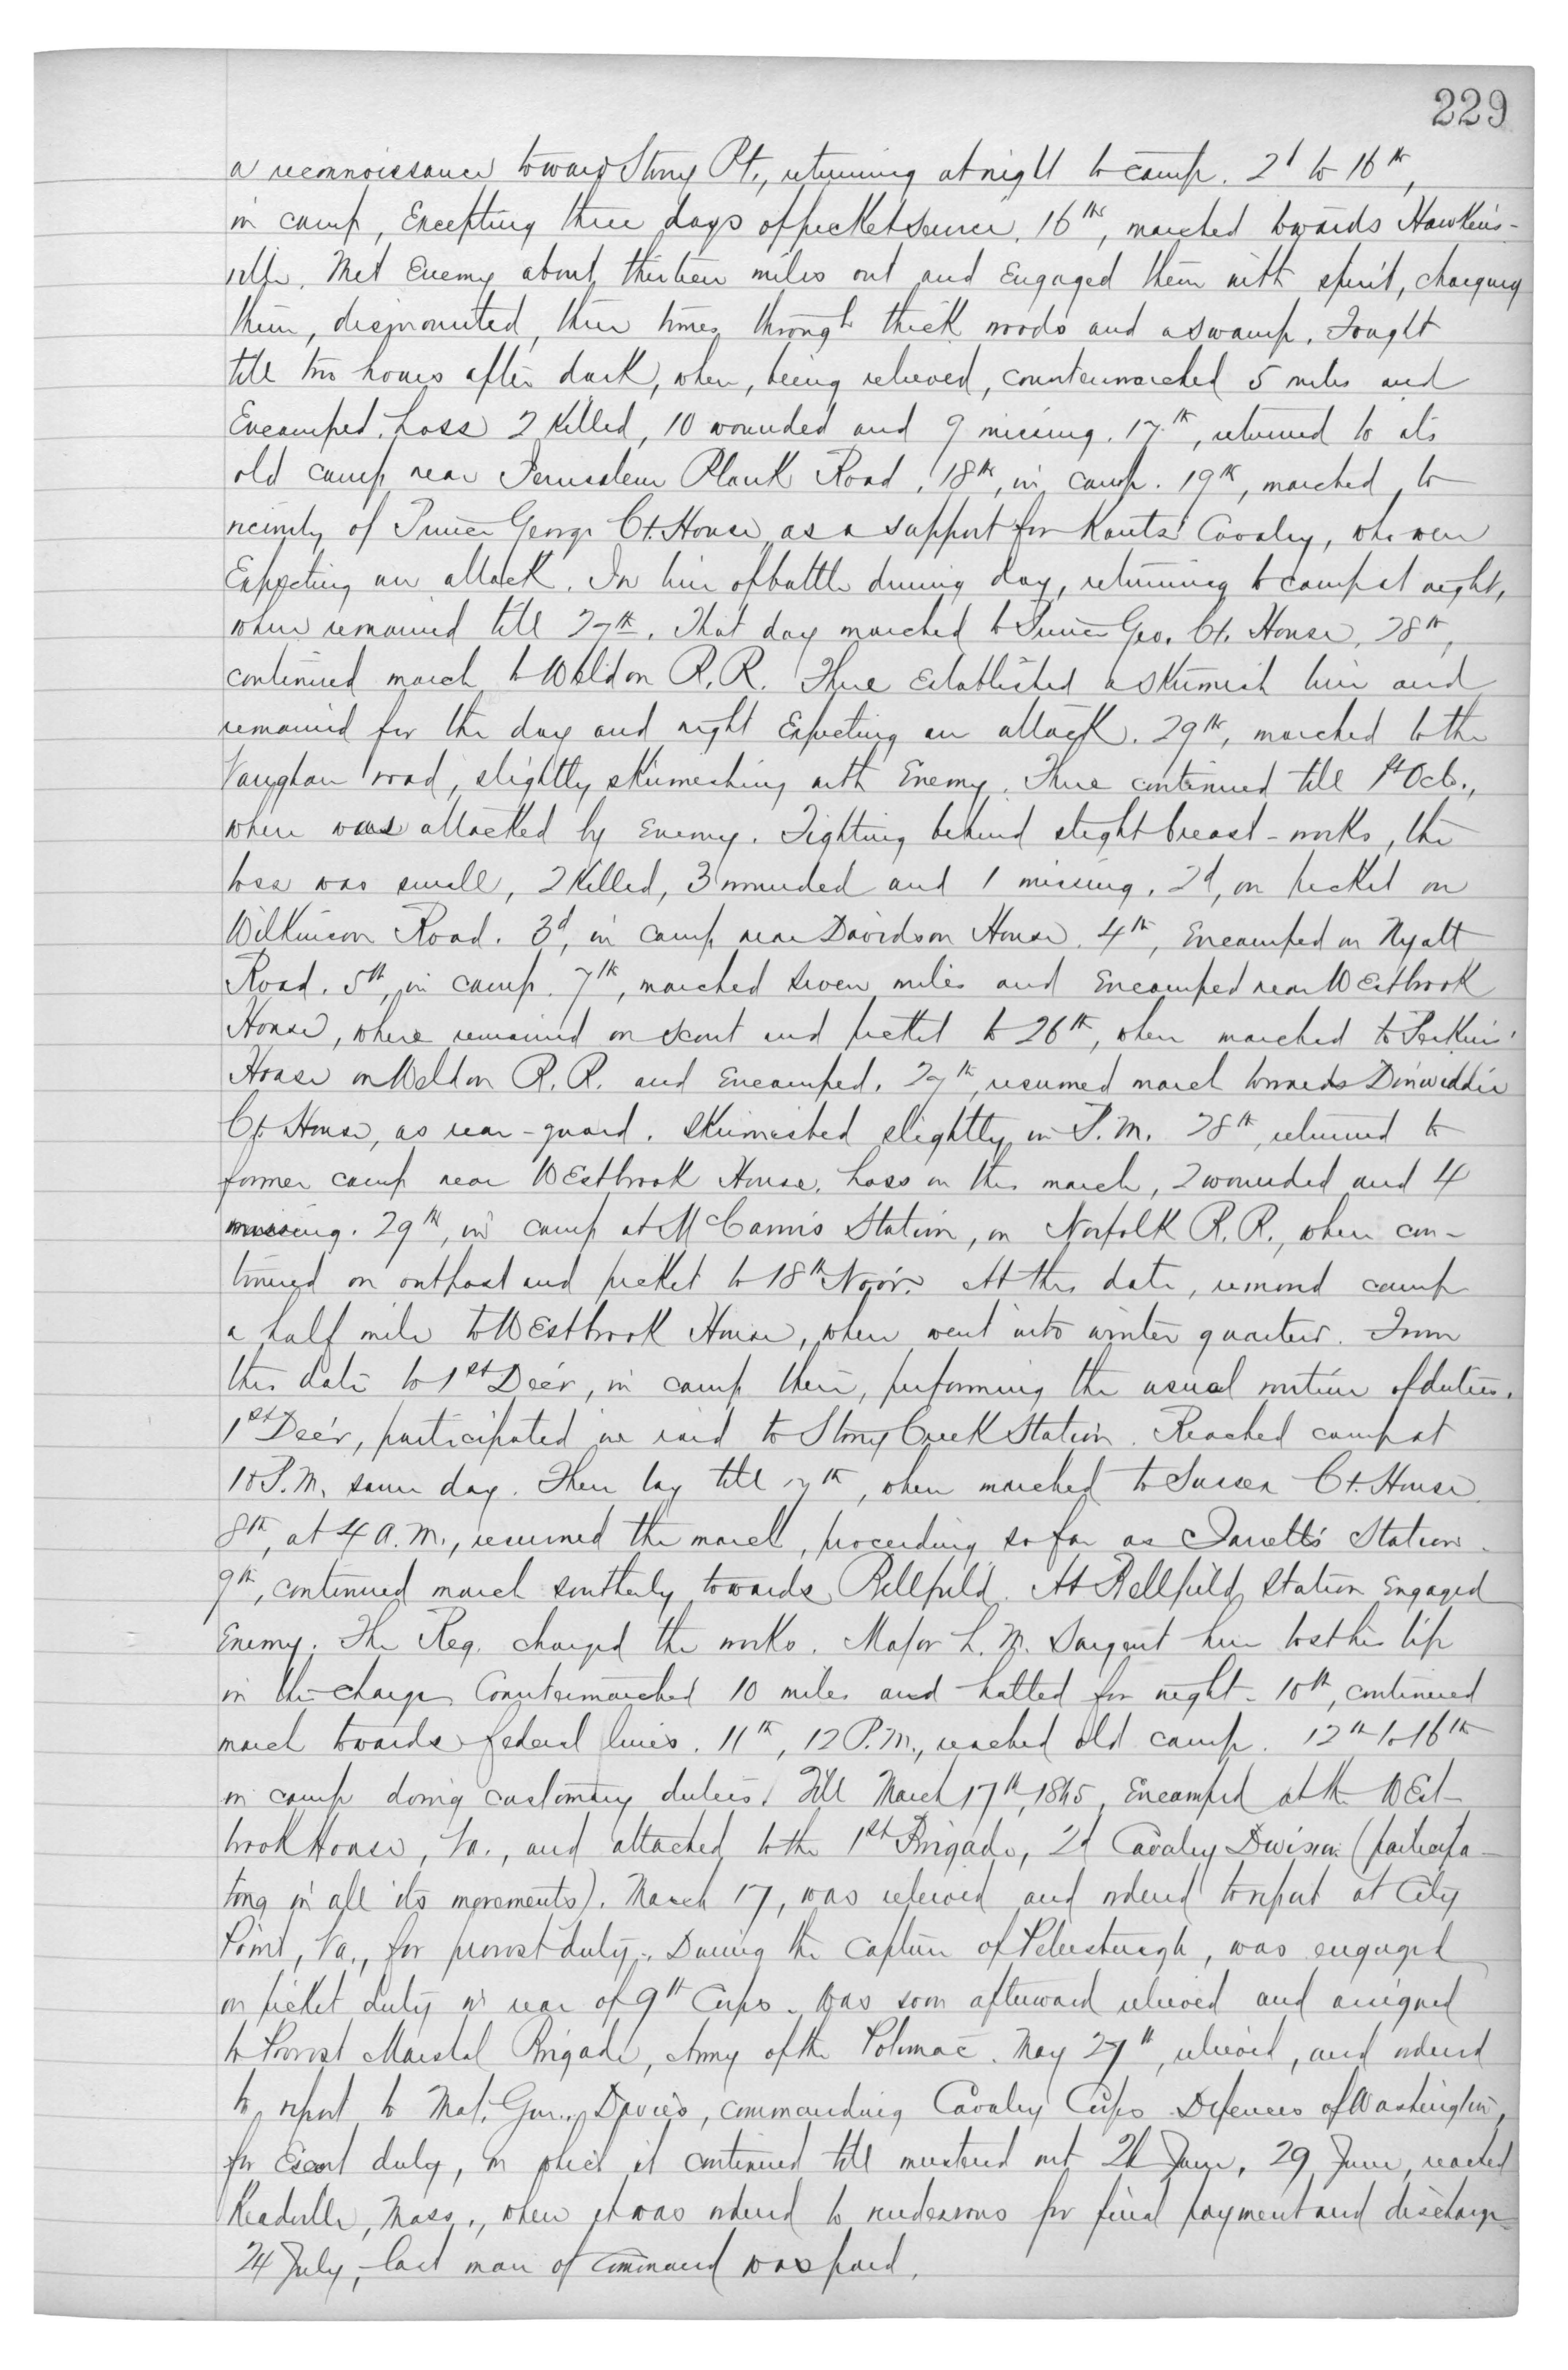 229
a reconnoissance toward Stony Pt., returning at night to camp. 2d to 16th,
in camp, Excepting three days of picket service. 16th, marched towards Hawkins-
ville. Met Enemy about thirteen miles out and Engaged them with spirit, charging
them, dismounted, three times through thick woods and a swamp. Fought
till two hours after dark, when, being relieved, countermarched 5 miles and
Encamped. Loss 2 killed, 10 wounded and 9 missing. 17th, returned to its
old camp near Jerusalem Plank Road. 18th, in camp. 19th, marched to
vicinity of Prince George Ct. House as a support for Kautz' Cavalry, who were
Expecting an attack. In line of battle during day, returning to camp at night,
where remained till 27th. That day marched to Prince Geo. Ct. House. 28th,
continued march to Weldon R.R. There Established a skirmish line and
remained for the day and night Expecting an attack. 29th, marched to the
Vaughan road, slightly skirmishing with Enemy. There continued till 1st Oct.,
where was attacked by Enemy. Fighting behind slight breast-works, the
loss was small, 2 killed, 3 wounded and 1 missing. 2d, on picket on
Wilkinson Road. 3d, in camp near Davidson House. 4th, Encamped on Wyatt
Road. 5th, in camp. 7th, marched seven miles and Encamped near Westbrook
House, where remained on scout and picket to 26th, when marched to Perkins'
House on Weldon R.R. and Encamped. 27th, resumed march towards Dinwiddie
Ct. House, as rear-guard. Skirmished slightly in P.M. 28th, returned to
former camp near Westbrook House. Loss on this march, 2 wounded and 4
missing. 29th, in camp at McCann's Station, on Norfolk R.R., where con-
tinued on outpost and picket to 18th Nov'r. At this date, removed camp
a half mile to Westbrook House, when went into winter quarters. From
this date to 1st Dec'r, in camp there, performing the usual routine of duties.
1st Dec'r, participated in raid to Stony Creek Station. Reached camp at
10 P.M. same day. There lay till 7th, when marched to Sussex Ct. House.
8th, at 4 A.M., resumed the march, proceeding so far as Jarrett's Station.
9th, continued march southerly towards Bellfield. At Bellfield Station Engaged
Enemy. The Reg. charged the works. Major L. M. Sargent here lost his life
in the charge. Countermarched 10 miles and halted for night. 10th, continued
march towards federal lines. 11th, 12 P.M., reached old camp. 12th to 16th
in camp doing customary duties. Till March 17th, 1865, Encamped at the West-
brook House, Va., and attached to the 1st Brigade, 2d Cavalry Division (participa-
ting in all its movements). March 17, was relieved and ordered to report at City
Point, Va., for provost duty. During the capture of Petersburgh, was engaged
on picket duty in rear of 9th Corps. Was soon afterward relieved and assigned
to Provost Marshal Brigade, Army of the Potomac. May 27th, relieved, and ordered
to report to Maj. Gen. Davies, commanding Cavalry Corps Defences of Washington,
for Escort duty, on which it continued till mustered out 26 June. 29 June, reached
Readville, Mass., where it was ordered to rendezvous for final payment and discharge
24 July, last man of Command was paid.